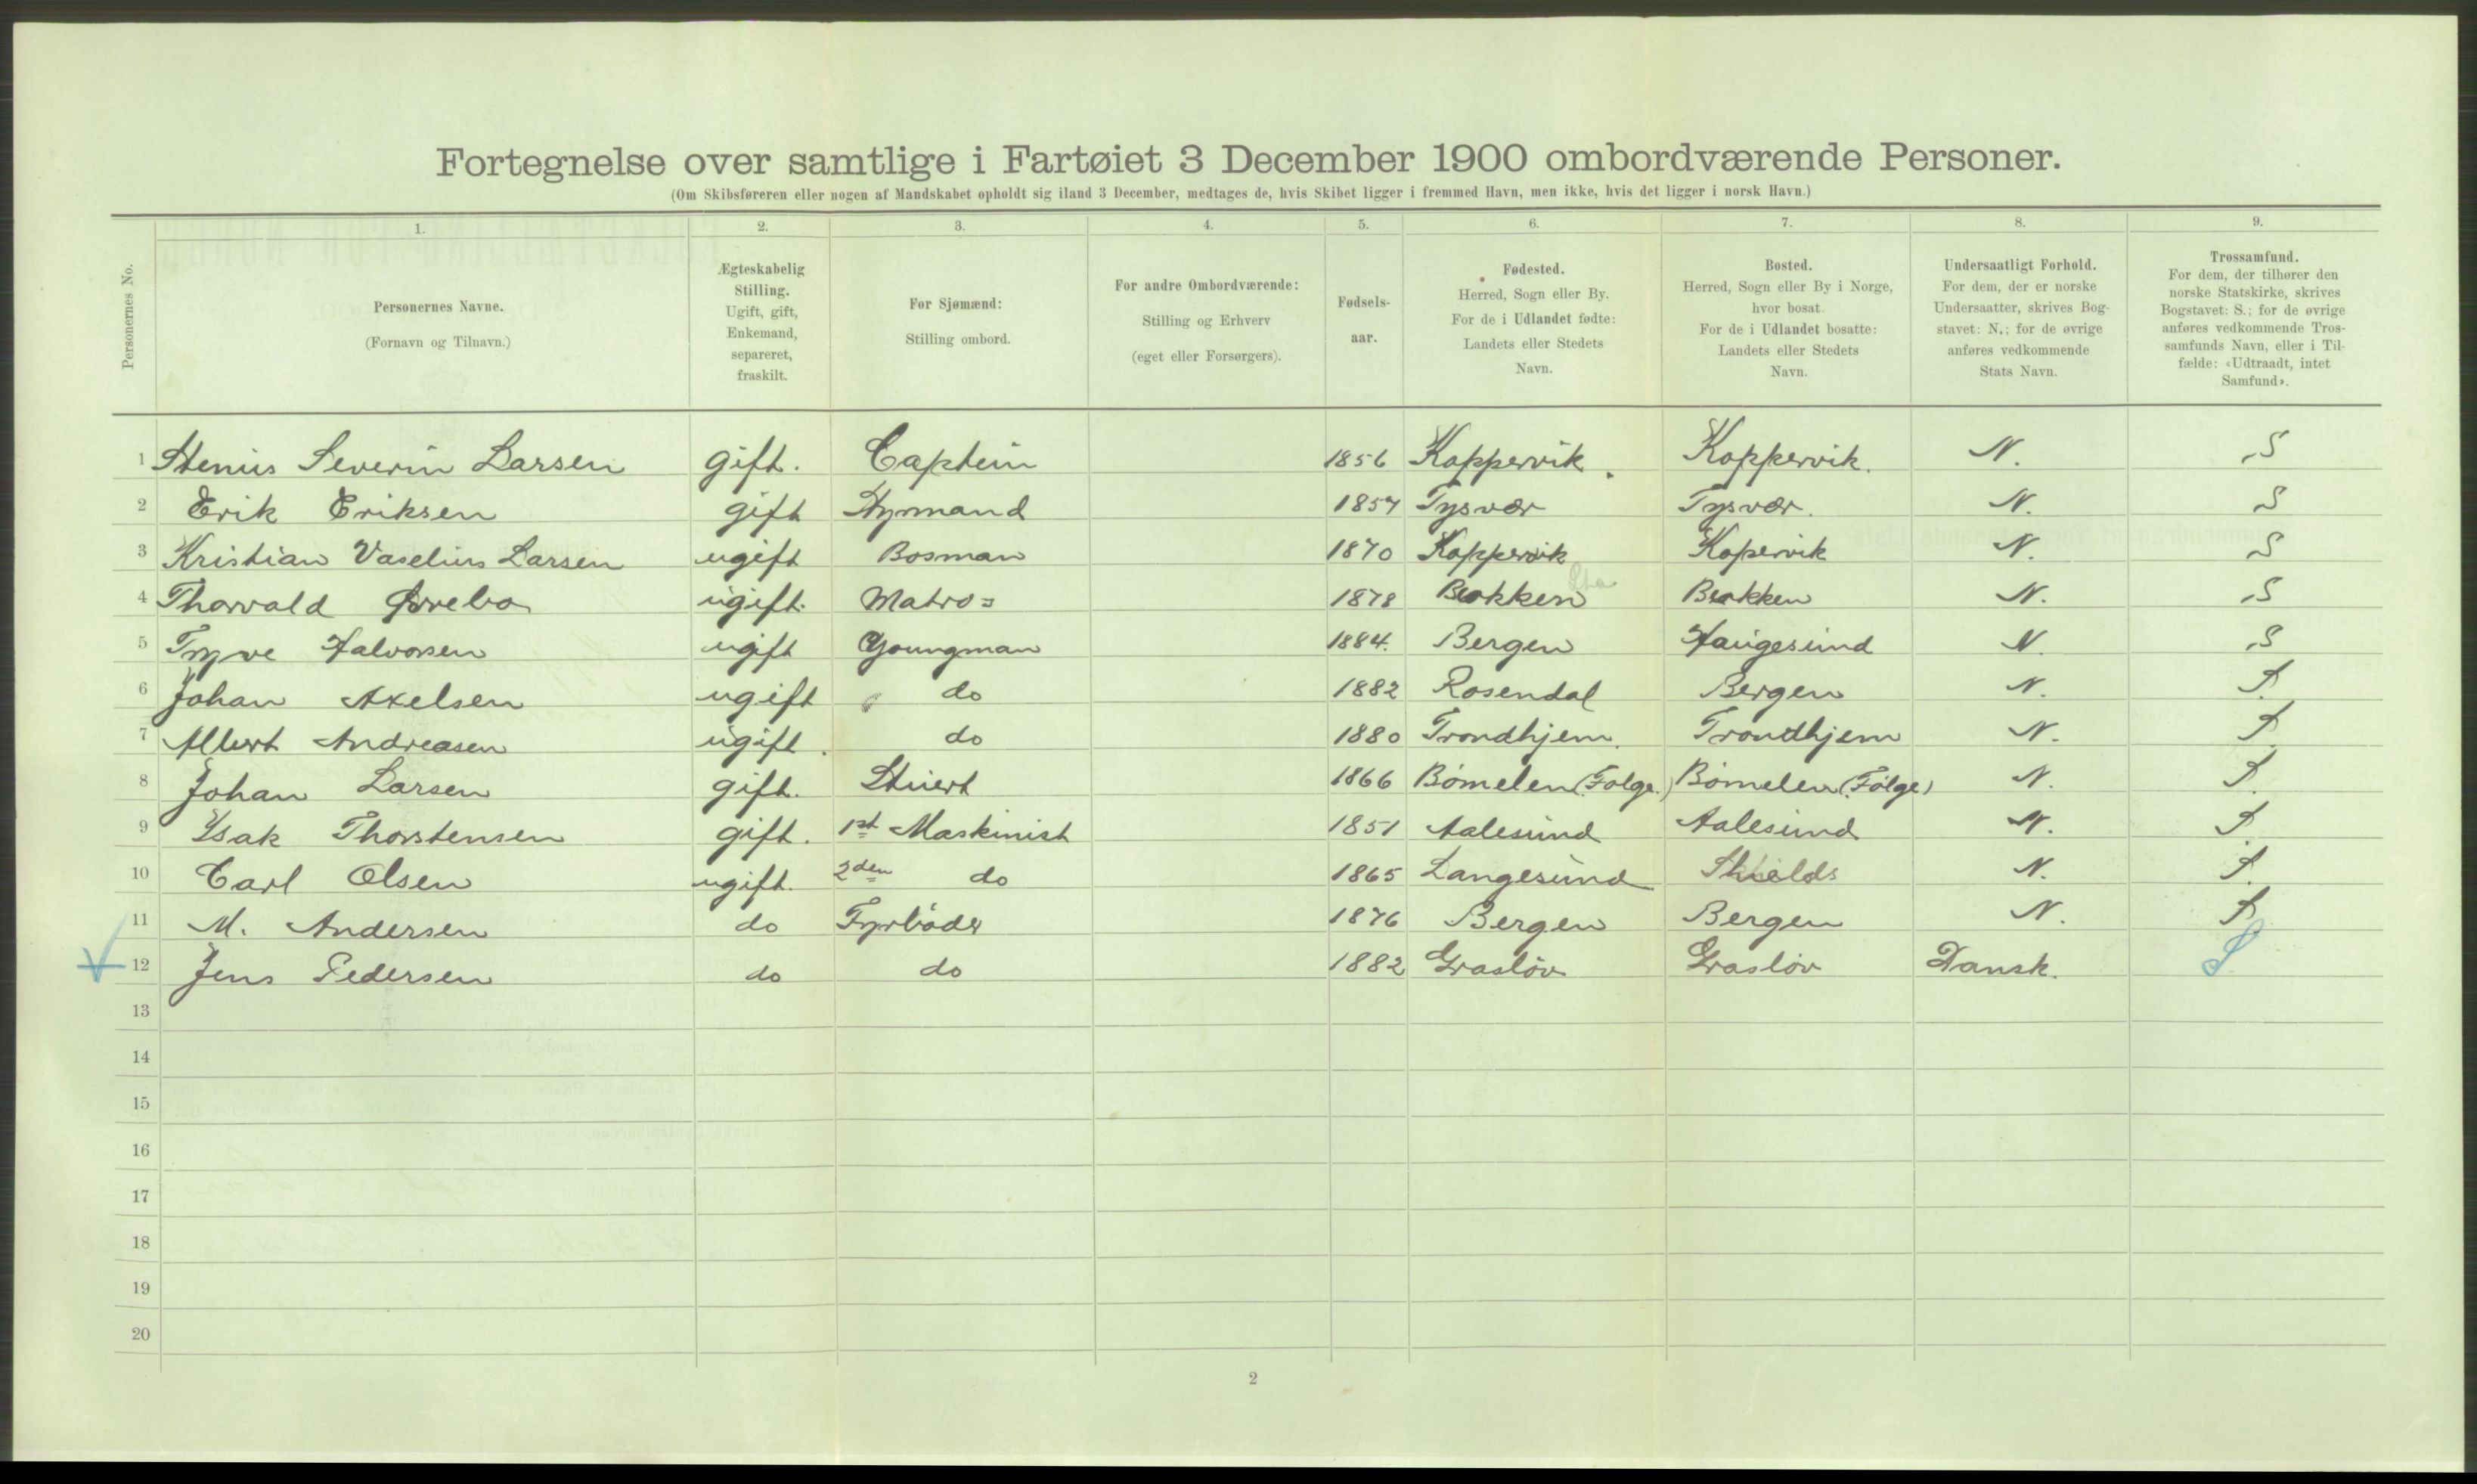 Fortegnelse over samtlige i Fartøiet 3 December 1900 ombordværende Personer.
(Om Skibsføreren eller nogen af Mandskabet opholdt sig iland 3 December, medtages de, hvis Skibet ligger i fremmed Havn, men ikke, hvis det ligger i norsk Havn.)
Personernes No.
1. 2. 3. 4. 5. 6. 7. 8. 9.
Personernes Navne.
(Fornavn og Tilnavn.)
Ægteskabelig
Stilling.
Ugift, gift,
Enkemand,
separeret,
fraskilt.
For Sjømænd:
Stilling ombord.
For andre Ombordværende:
Stilling og Erhverv
(eget eller Forsørgers).
Fødsels-
aar.
Fødested.
Herred, Sogn eller By.
For de i Udlandet fødte:
Landets eller Stedets
Navn.
Bosted.
Herred, Sogn eller By i Norge,
hvor bosat.
For de i Udlandet bosatte:
Landets eller Stedets
Navn.
Undersaatligt Forhold.
For dem, der er norske
Undersaatter, skrives Bog-
stavet: N.; for de øvrige
anføres vedkommende
Stats Navn.
Trossamfund.
For dem, der tilhører den
norske Statskirke, skrives
Bogstavet: S.; for de øvrige
anføres vedkommende Tros-
samfunds Navn, eller i Til-
fælde: «Udtraadt, intet
Samfund».
1 Stenius Severin Larsen gift. Captein 1856 Koppervik. Koppervik. N. S
2 Erik Eriksen gift Styrmand 1857 Tysvær Tysvær. N. S
3 Kristian Vaselius Larsen ugift Bosman 1870 Koppervik Kopervik N. S
4 Thorvald ugift. Matros 1878 N. S
5 Tryve Halvorsen ugift Youngman 1884. Bergen Haugesund N. S
6 Johan Axelsen ugift do 1882 Rosendal Bergen N. S.
7 Albert Andreasen ugift. do 1880 Trondhjem. Trondhjem N. S.
8 Johan Larsen gift. Stuert 1866 Bömelen (Folge.) Bömelen (Fölge) N. S.
9 Isak Thorstensen gift. 1st Maskinist 1851 Aalesund Aalesund N. S.
10 Carl Olsen ugift. 2den do 1865 Langesund Shields N. S.
11 M. Andersen do Fyrböder 1876 Bergen Bergen N. S.
12 Jens Pedersen do do 1882 Grasløv Grasløv Dansk. S.
13
14
15
16
17
18
19
20
2